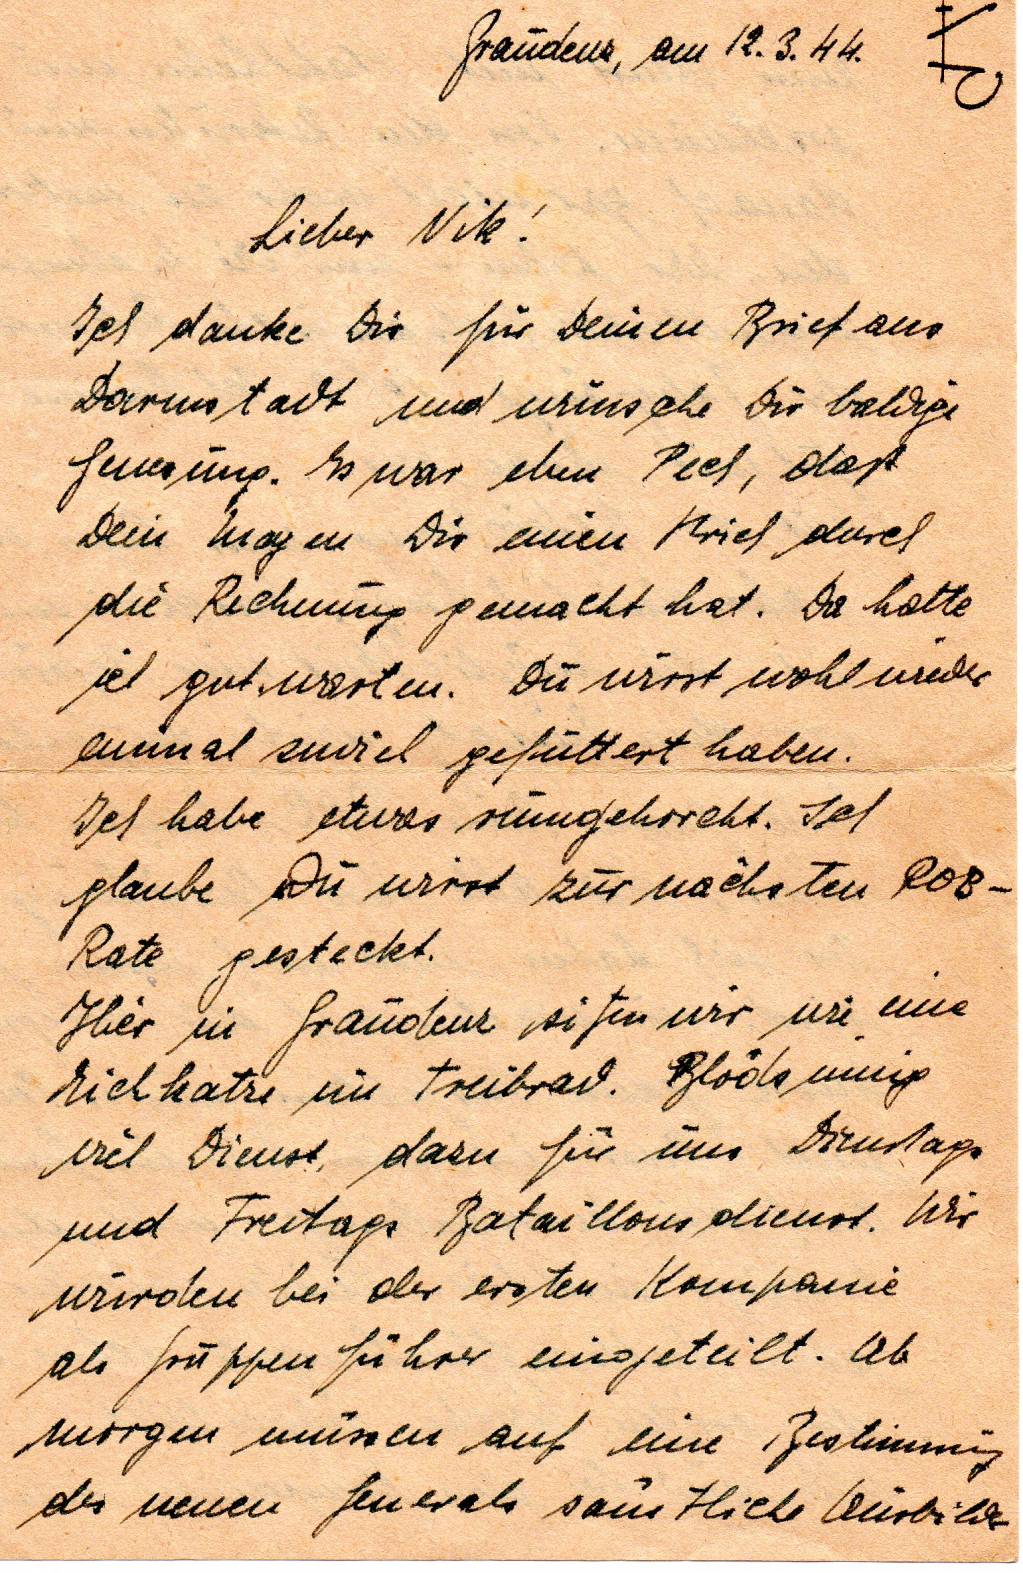 Graudenz, am 12.3.44.
Lieber Nik!
Ich danke Dir für Deinen Brief aus
Darmstadt und wünsche Dir baldige
Genesung. Es war eben Pech, daß
Dein Magen Dir einen Strich durch
die Rechnung gemacht hat. Da hatte
ich gut warten. Du wirst wohl wieder
einmal zuviel gefuttert haben.
Ich habe etwas rumgehorcht. Ich
glaube Du wirst zur nächsten ROB-
Rate gesteckt.
Hier in Graudenz sitzen wir wie eine
Eichkatze im Treibrad. Blödsinnig
viel Dienst, dazu für uns Dienstags
und Freitags Bataillonsdienst. Wir
wurden bei der ersten Kompanie
als Gruppenführer eingeteilt. Ab
morgen müssen auf eine Bestimmung
des neuen Generals sämtliche Ausbilder